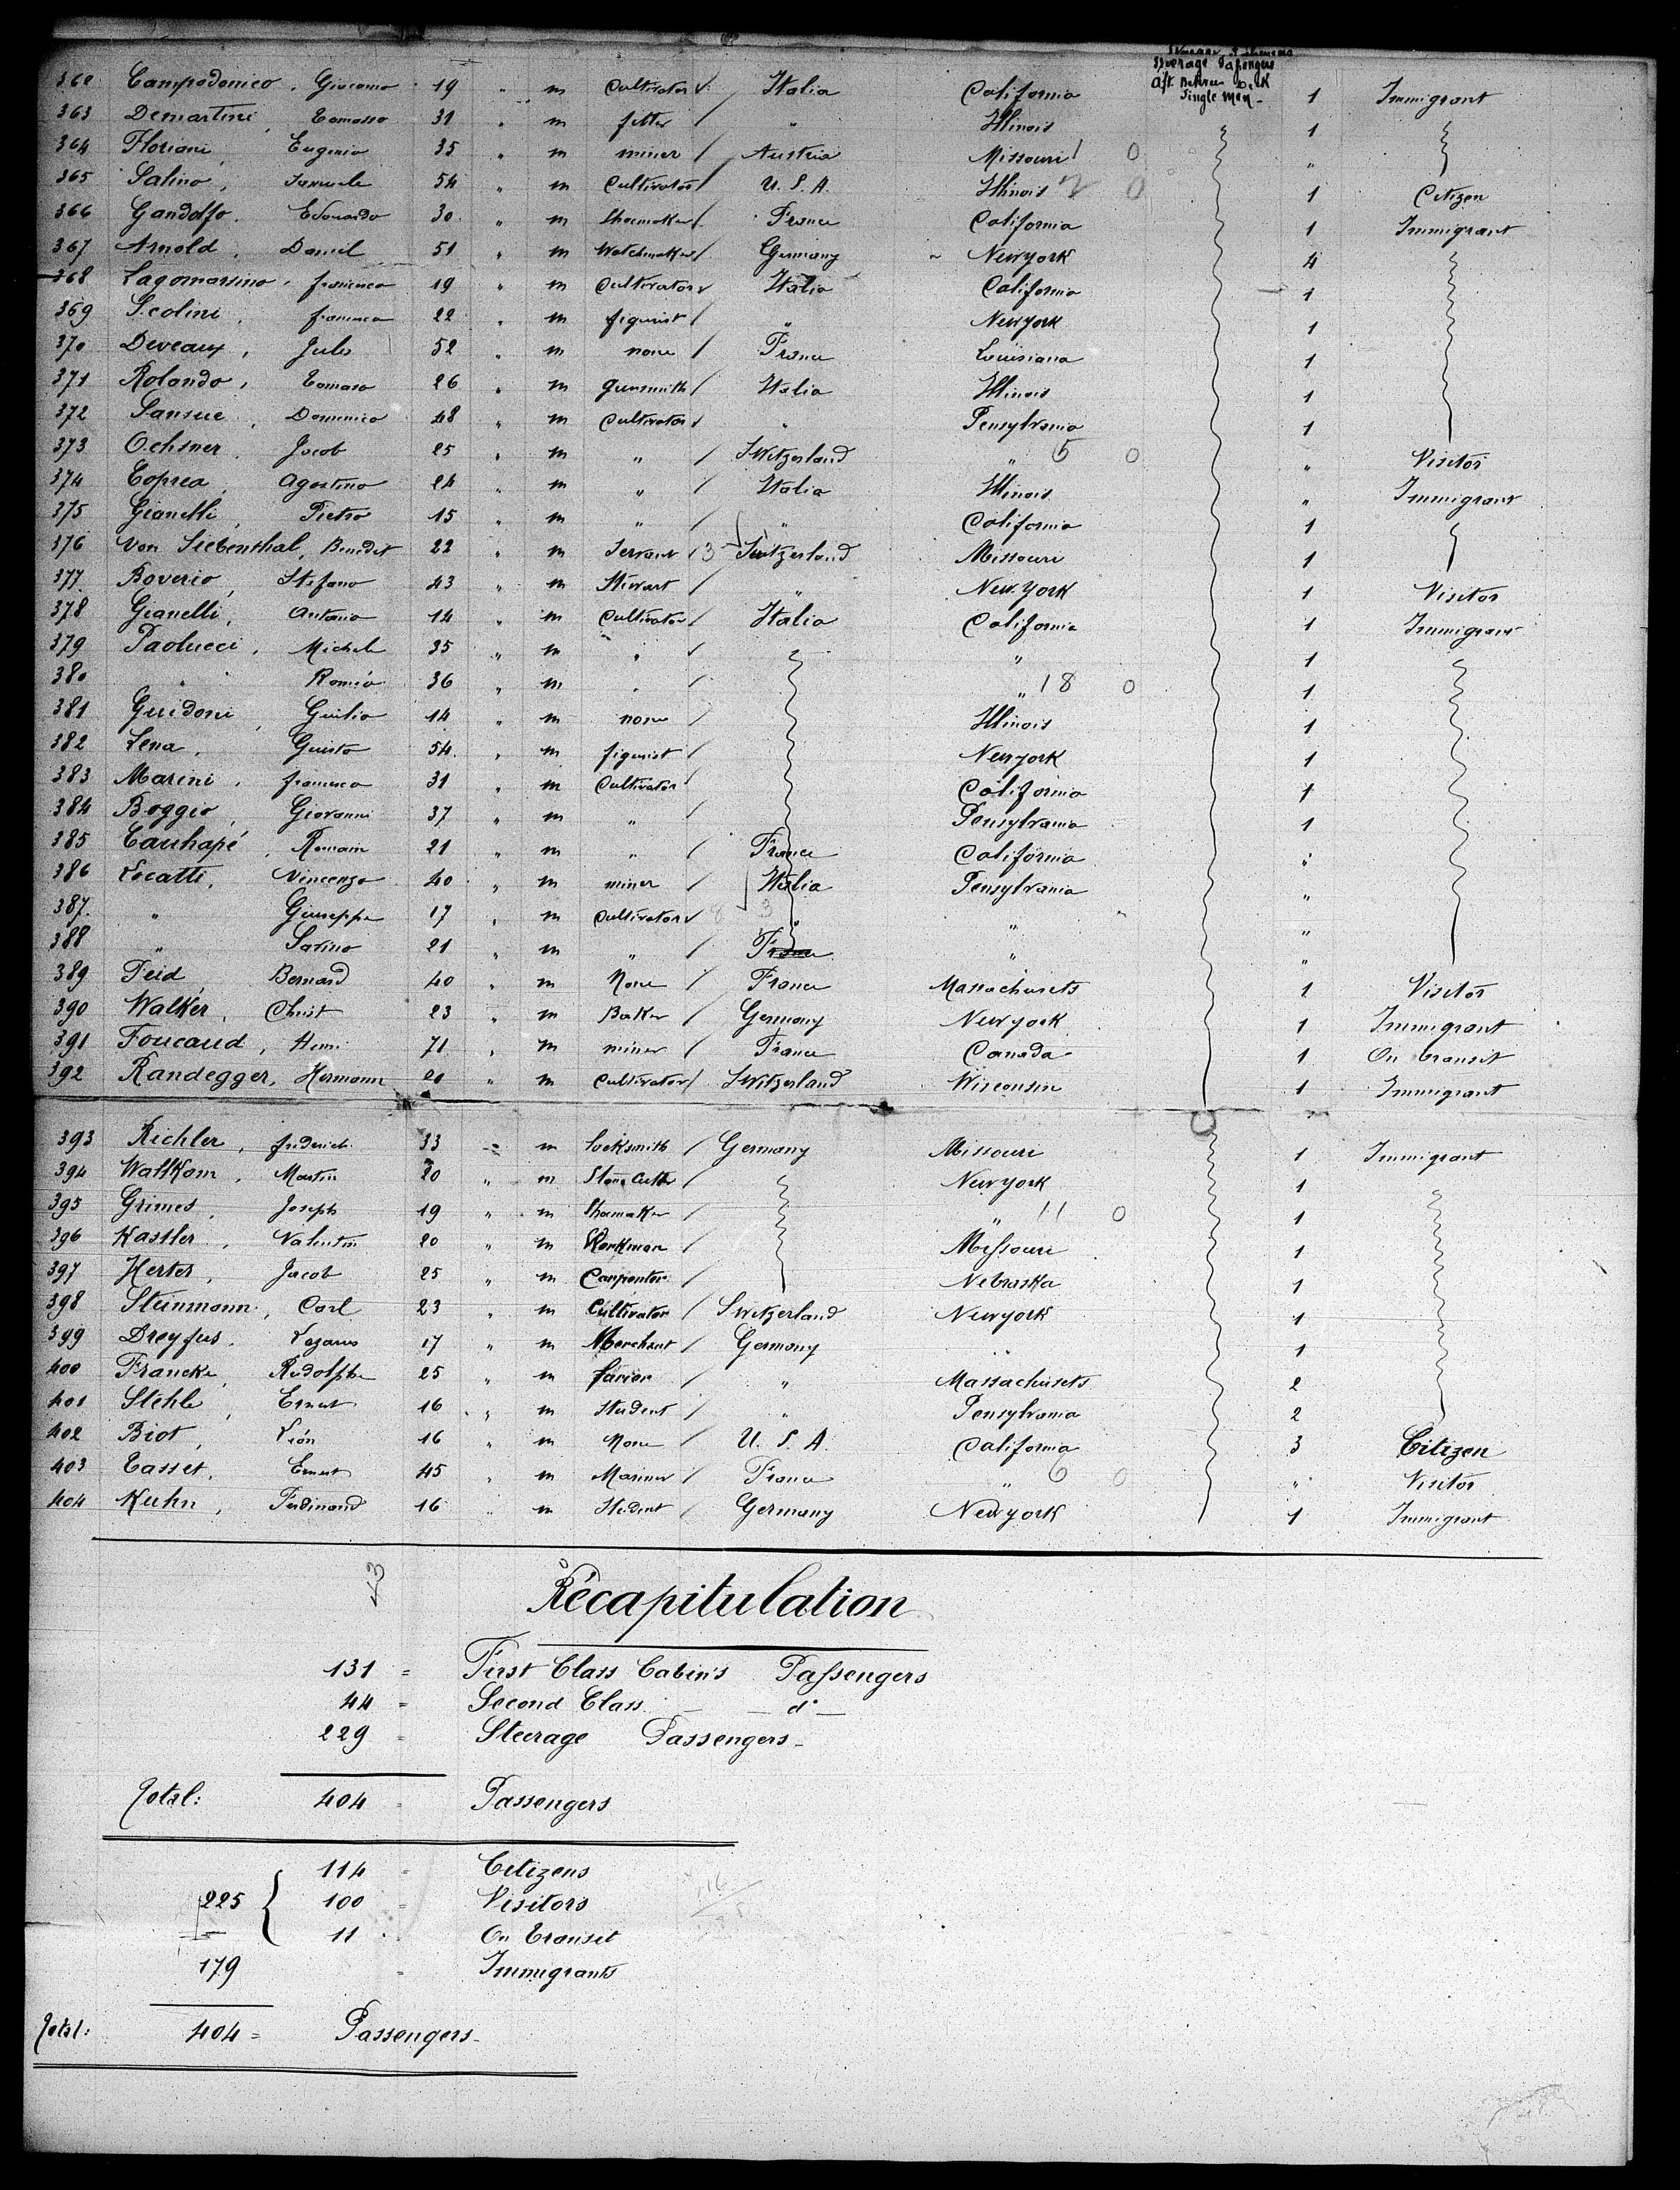 Steerage Passengers
Aft Between Deck
Single Men
362 Campodonico, Giacomo 19 " m Cultivator Italia California 1 Immigrant
363 Demartini, Tomasso 31 " m fitter " Illinois 1
364 Floriani, Eugenio 35 " m miner / Austria Missouri 1 0 "
365 Salino, Samuele 54 " m Cultivator / U. S. A. Illinois 2 0 1 Citizen
366 Gandolfo, Edouardo 30 " m Shoemaker / France California 1 Immigrant
367 Arnold, Daniel 51 " m Watchmaker / Germany New york 4
368 Lagomarsino, francesco 19 " m Cultivator Italia California 1
369 Scolini, francesco 22 " m figurist / " New york 1
370 Deveaux, Jules 52 " m none / France Louisiana 1
371 Rolando, Tomaso 26 " m gunsmith / Italia Illinois 1
372 Sansue, Domenico 48 " m Cultivator " Pensylvania 1
373 Ochsner, Jacob 25 " m " / Switzerland " 5 0 " Visitor
374 Coprea, Agostino 24 " m " / Italia Illinois " Immigrant
375 Gianelli, Pietro 15 " m " / " California 1
376 Von Siebenthal, Benedit 22 " m Servant / 3 Switzerland Missouri 1
377 Boverio, Stefano 43 " m Stewart / " New York 1 Visitor
378 Gianelli, Antonio 14 " m Cultivator / Italia California 1 Immigrant
379 Paolucci, Michele 35 " m " / " 1
380 " Roméo 36 " m " / " 18 0 1
381 Guidoni, Guilio 14 " m none / Illinois 1
382 Lena, Guisto 54 " m figurist / New york 1
383 Marini, francesco 31 " m Cultivator / California 1
384 Boggio, Giovanni 37 " m " / Pensylvania 1
385 Cauhapé, Romain 21 " m " / France California "
386 Locatti, Vincenzo 40 " m miner / Italia Pensylvania "
387 " Giuseppe 17 " m Cultivator 8 3 " " "
388 " Savino 21 " m " / France " "
389 Feid, Bernard 40 " m None / France Massachusets 1 Visitor
390 Walker, Christ 23 " m Baker / Germany New york 1 Immigrant
391 Foucaud, Henri 71 " m miner / France Canada 1 On transit
392 Randegger, Hermann 20 " m Cultivator / Switzerland Wisconsin 1 Immigrant
393 Richler, frederich 33 " m locksmith / Germany Missouri 1 Immigrant
394 Walkam, Martin 20 " m Stone Cutter / New york 1
395 Grimes, Joseph 19 " m Shoemaker / " 11 0 1
396 Kassler, Valentin 20 " m Workman / Missouri 1
397 Herter, Jacob 25 " m Carpenter / Nebraska 1
398 Steinmann, Carl 23 " m Cultivator / Switzerland New york 1
399 Dreyfus, Lazarus 17 " m Merchant / Germany " 1
400 Francke, Rudolphe 25 " m farier / " Massachusets 2
401 Stehle, Ernest 16 " m Student / " Pensylvania 2
402 Biot, Léon 16 " m None / U. S. A. California 3 Citizen
403 Tasset, Ernest 45 " m Mariner / France " 6 0 " Visitor
404 Kuhn, Ferdinand 16 " m Student / Germany New york 1 Immigrant
43
Récapitulation
131 = First Class Cabin's Passengers
44 = Second Class — d° —
229 = Steerage Passengers
Total: 404 = Passengers
114 = Citizens
225 { 100 = Visitors
11 On transit
179 = Immigrants
Total: 404 = Passengers